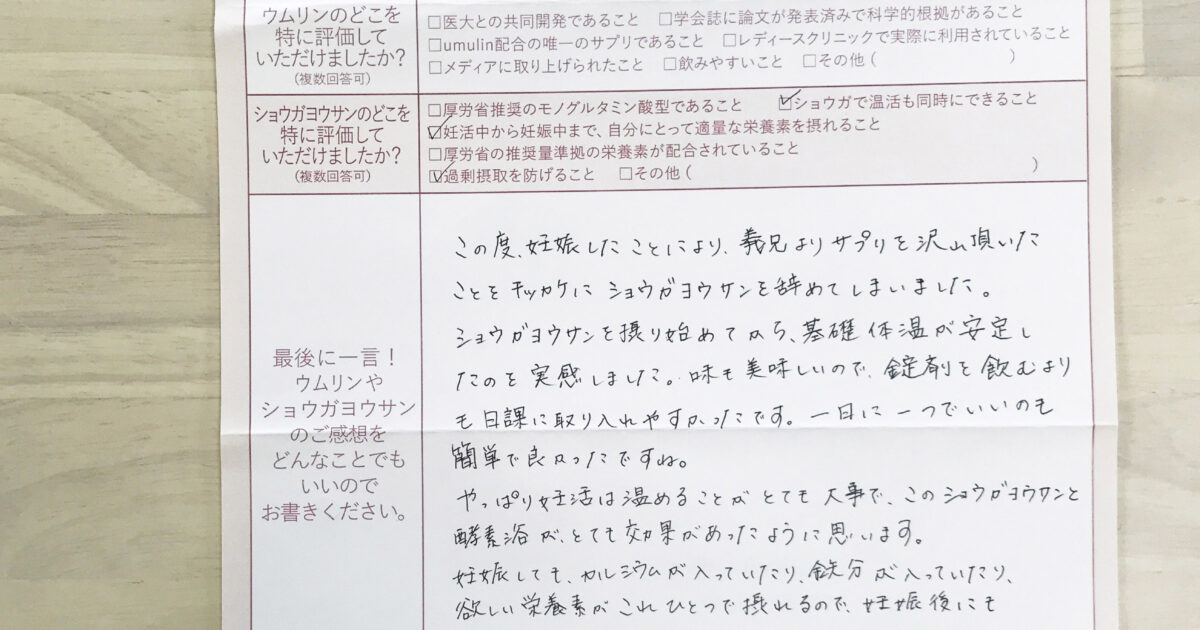 ウムリンのどこを
特に評価して
いただけましたか?
(複数回答可)
□医大との共同開発であること □学会誌に論文が発表済みで科学的根拠があること
□umulin配合の唯一のサプリであること □レディースクリニックで実際に利用されていること
□メディアに取り上げられたこと □飲みやすいこと □その他( )
ショウガヨウサンのどこを
特に評価して
いただけましたか?
(複数回答可)
□厚労省推奨のモノグルタミン酸型であること ☑ショウガで温活も同時にできること
☑妊活中から妊娠中まで、自分にとって適量な栄養素を摂れること
□厚労省の推奨量準拠の栄養素が配合されていること
☑過剰摂取を防げること □その他( )
最後に一言!
ウムリンや
ショウガヨウサン
のご感想を
どんなことでも
いいので
お書きください。
この度、妊娠したことにより、義兄よりサプリを沢山頂いた
ことをキッカケにショウガヨウサンを辞めてしまいました。
ショウガヨウサンを摂り始めてから、基礎体温が安定し
たのを実感しました。味も美味しいので、錠剤を飲むより
も日課に取り入れやすかったです。一日に一つでいいのも
簡単で良かったですね。
やっぱり妊活は温めることがとても大事で、このショウガヨウサンと
酵素浴が、とても効果があったように思います。
妊娠しても、カルシウムが入っていたり、鉄分が入っていたり、
欲しい栄養素がこれひとつで摂れるので、妊娠後にも